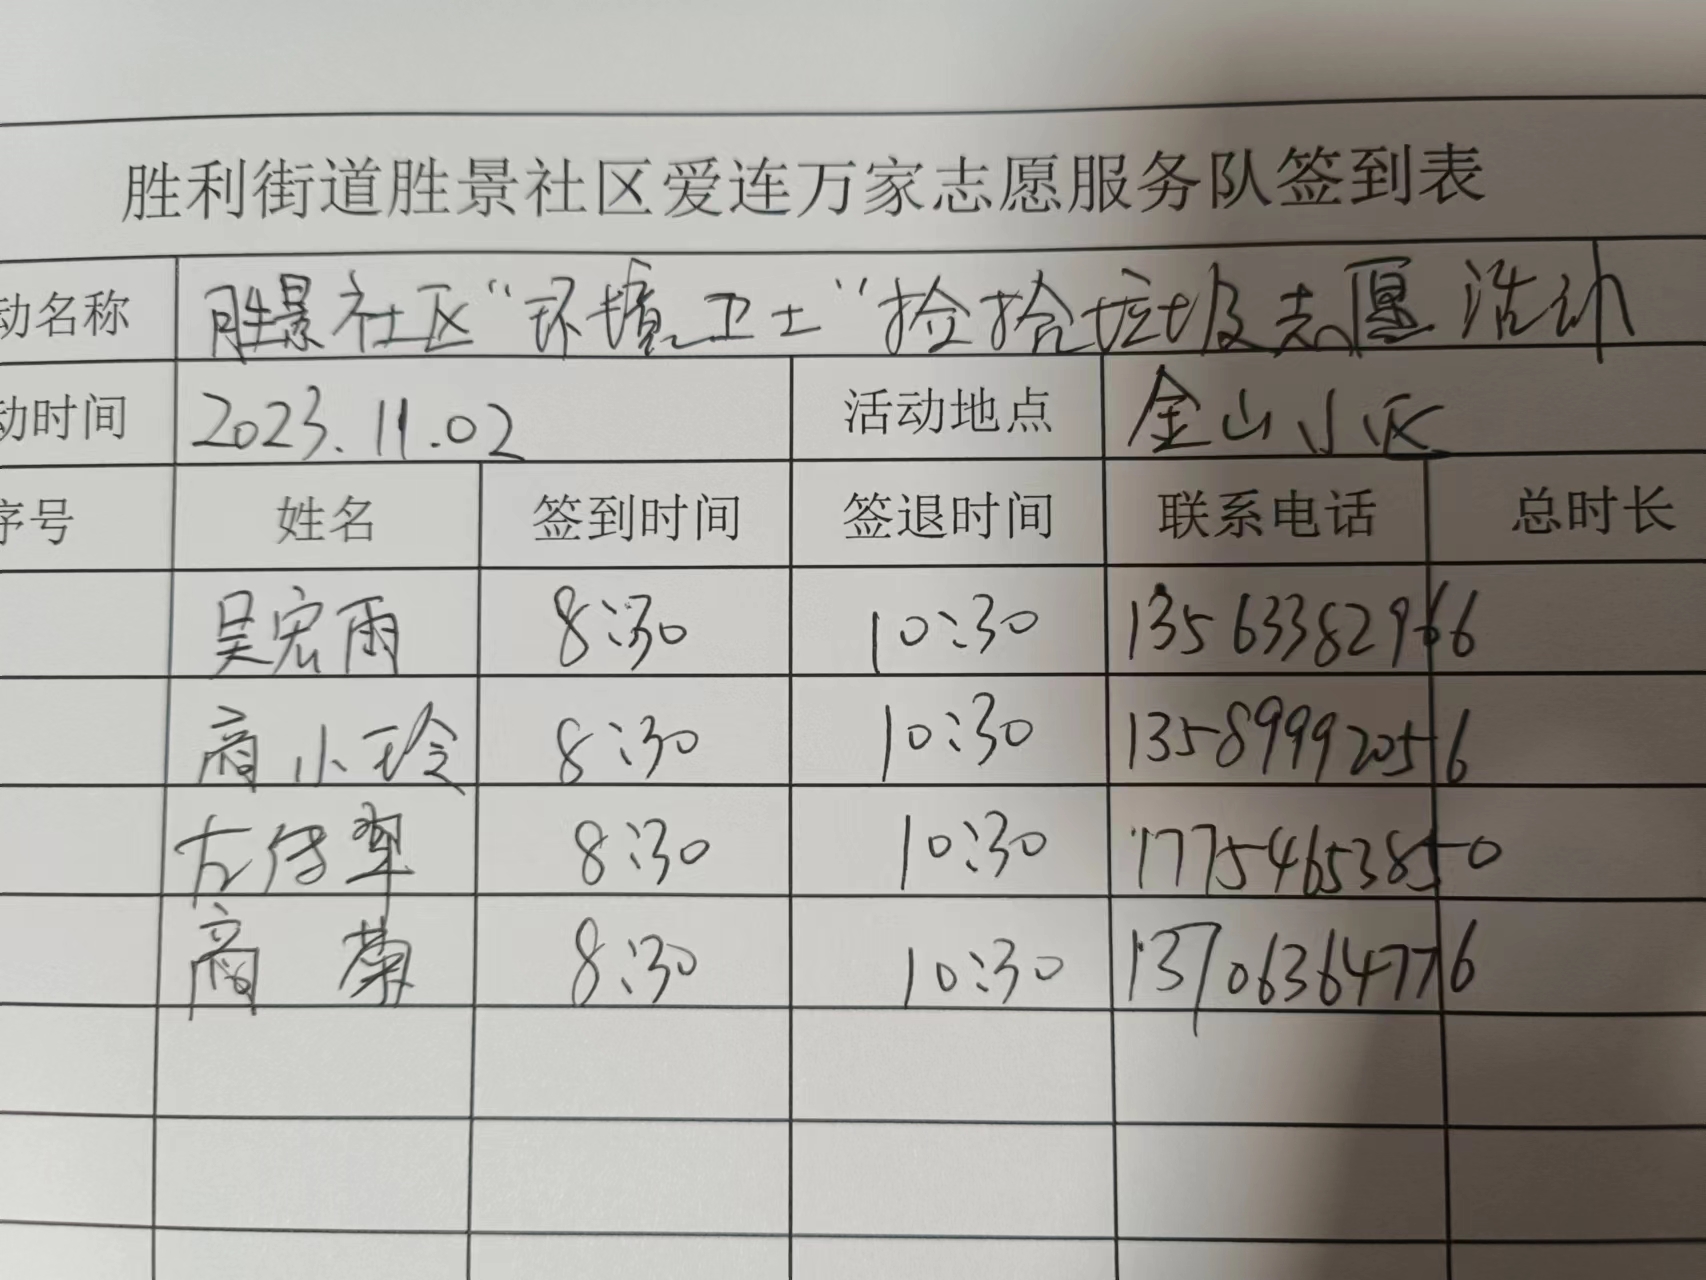 胜利街道胜景社区爱连万家志愿服务队签到表
动名称 胜景社区“环境卫士”捡拾垃圾志愿活动
动时间 2023.11.02 活动地点 金山小区
序号 姓名 签到时间 签退时间 联系电话 总时长
吴宏雨 8:30 10:30 13563382966
商小玲 8:30 10:30 13589992056
左传翠 8:30 10:30 17754653850
商 菊 8:30 10:30 13706364776